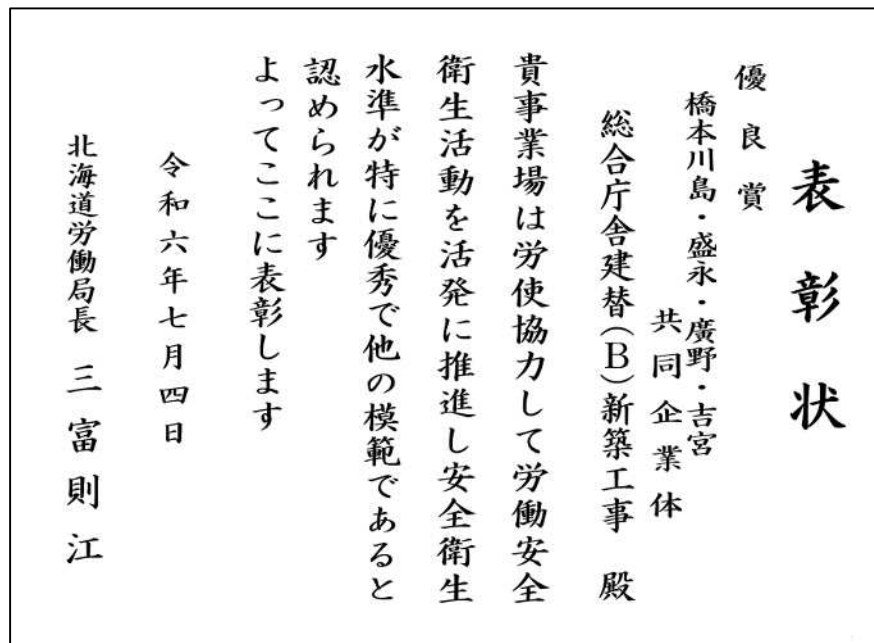 表彰状
優良賞
橋本川島・盛永・廣野・吉宮
共同企業体
総合庁舎建替(B)新築工事 殿
貴事業場は労使協力して労働安全
衛生活動を活発に推進し安全衛生
水準が特に優秀で他の模範であると
認められます
よってここに表彰します
令和六年七月四日
北海道労働局長 三富則江